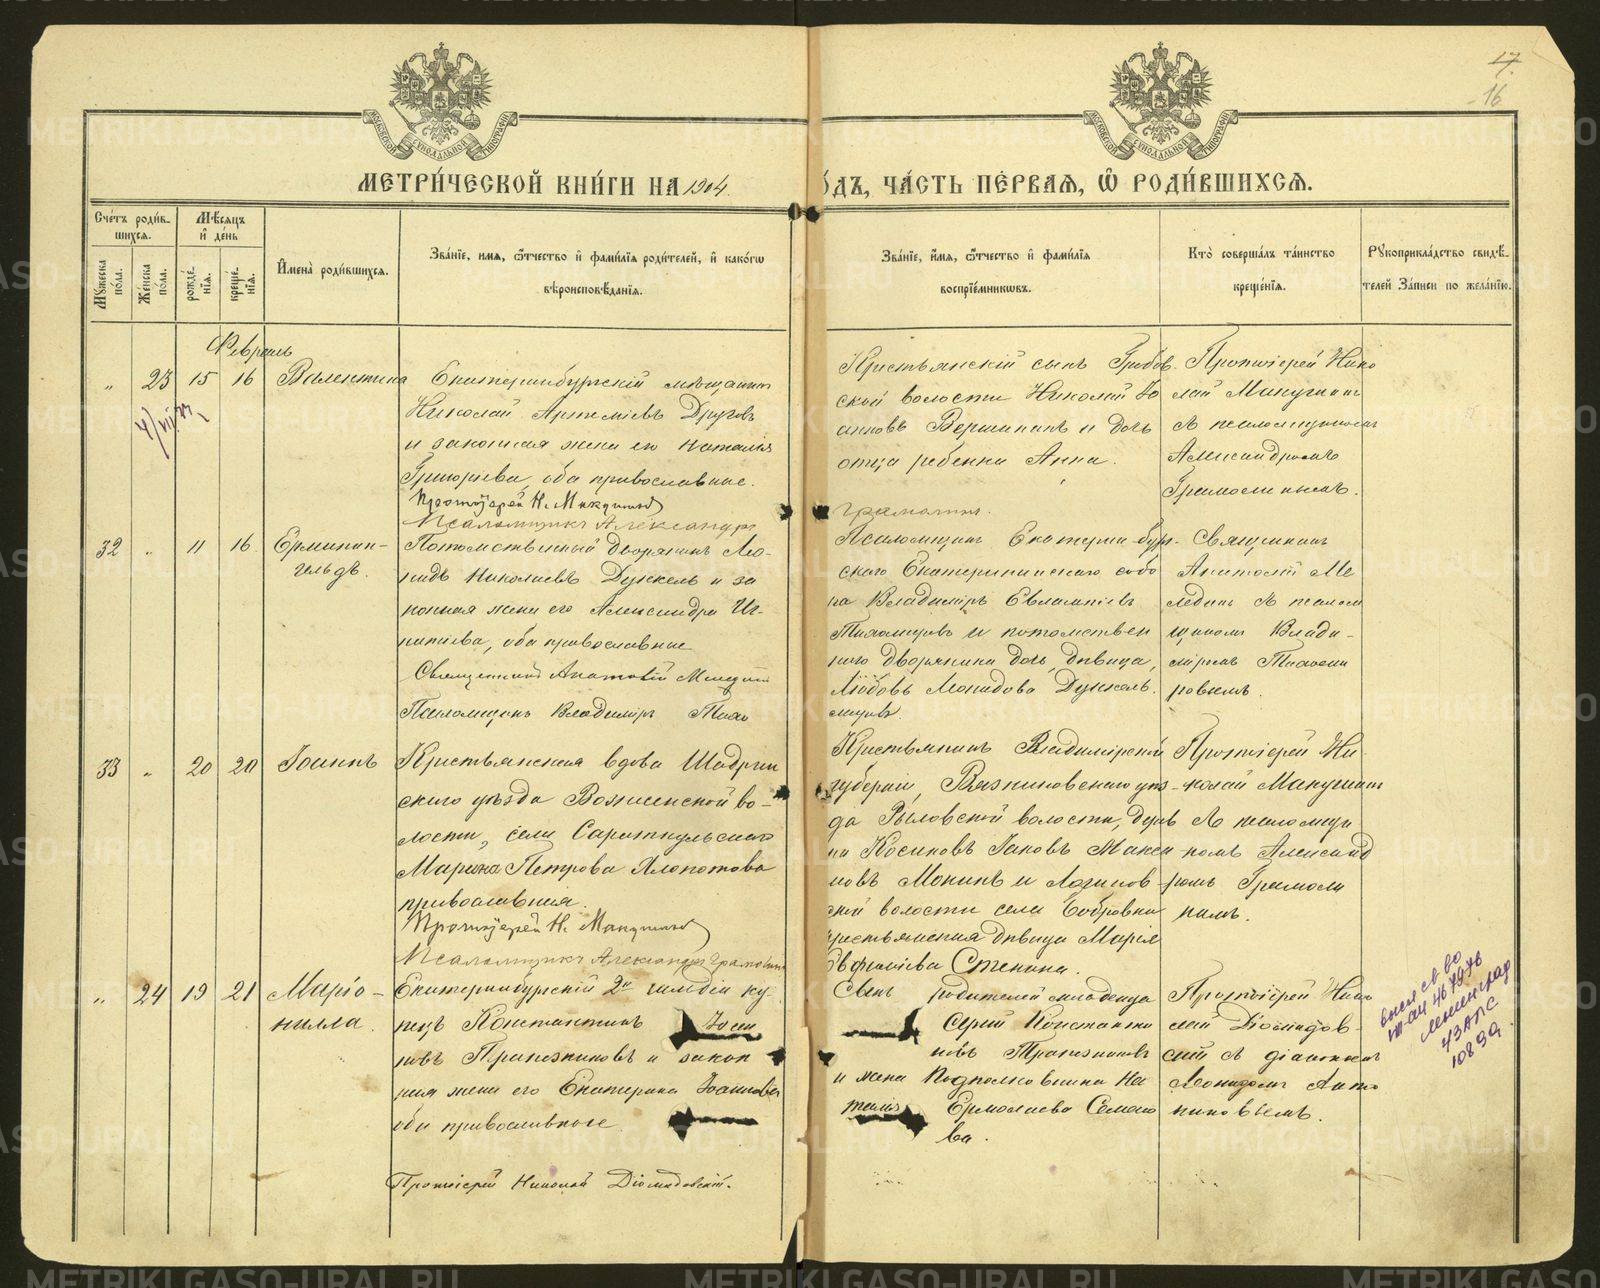 17
16
МЕТРИ́ЧЕСКОЙ КНИ́ГИ НА 1904
ОДЪ, ЧА́СТЬ ПЕ́РВАЯ, Ѿ РОДИ́ВШИХСЯ.
Сче́тъ роди́в-
шихся.
Мѣ́сяцъ
и де́нь
Му́жеска
по́ла.
Же́нска
по́ла.
рожде́-
нія.
креще́-
нія.
И҆мена̀ роди́вшихся.
Зва́ніе, и́мя, ѻ҆́тчество и҆ фами́лія роди́телей, и҆ како́гѡ
вѣроисповѣ́данія.
Зва́ніе, и҆́мя, ѻ҆́тчество и҆ фами́лія
воспріе́мникѡвъ.
Кто̀ соверша́лъ та́инство
креще́нія.
Рукоприкла́дство свидѣ́-
телей за́писи по жела́нію.
Февраль
" 23 15 16 Валентина
Екатеринбургскій мѣщанинъ
Николай Артеміевъ Друговъ
и законная жена его Наталія
Григорьева, оба православные.
Протоіерей Н. Мик
Псаломщикъ Александръ
Крестьянскій сынъ Грибов
ской волости Николай Іо
анновъ Вершининъ и дочь
отца ребенка Анна.
Протоіерей Нико
лай
съ псаломщикомъ
Александромъ
32 " 11 16 Ерминин-
гельдъ.
Потомственный дворянинъ Лео-
нидъ Николаевъ Дункель и за
конная жена его Александра Иг-
натіева, оба православные
Священникъ Анатолій
Псаломщикъ Владиміръ Тихо
Псаломщикъ Екатеринбур-
скаго Екатерининскаго собо
ра Владиміръ Евлампіевъ
Тихомировъ и потомствен
наго дворянина дочь, дѣвица,
Любовь Леонидова Дункель.
мировъ.
Священникъ
Анатолій Ме
ледин съ псалом
щикомъ Влади-
міромъ Тихоми
ровымъ.
33 " 20 20 Іоаннъ
Крестьянская вдова Шадрин
скаго уѣзда Вознесенской во-
лости, села Сараткульскаго
Марина Петрова Хлопотова
православная.
Протоіерей Н.
Псаломщикъ Александръ
Крестьянинъ Владимірской
губерніи, Вязниковскаго уѣз-
да Рыловской волости, дерев
ни Косиковъ Іаковъ Макси
мовъ Мокинъ и Логинов
ской волости села Бобровки
крестьянская дѣвица Марія
Евфиміева Стенина.
Протоіерей Ни
колай
съ псаломщи
комъ Александ
ромъ
" 24 19 21 Маріо-
нилла.
Екатеринбургскій 2й гильдіи ку
пецъ Константинъ Іоси
повъ Трапезниковъ и закон
ная жена его Екатерина Іоаннова
оба православные.
Протоіерей Николай Діомидовскій.
Сынъ родителей младенца
Сергій Константи
новъ Трапезниковъ
и жена Подполковника На
талія Ермолаева Семено
ва.
Протоіерей Нико
лай Діомидов-
скій съ діакономъ
Леонидомъ Анто
ниновымъ.
Ленинград
ЗАГС